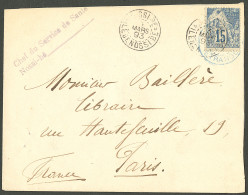 Chef du Service de Santé
Nossi-Bé
MARS
93
15
Monsieur Baillière
Libraire
rue Hautefeuille, 19
Paris.
France